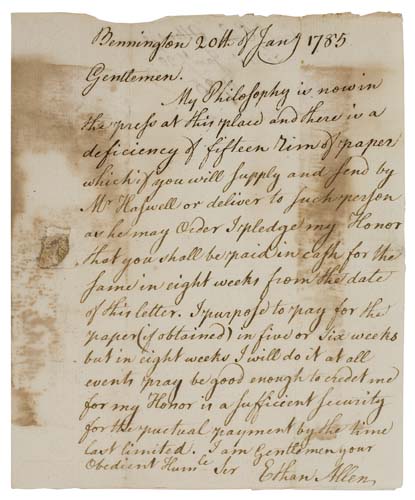 Bennington 20th of Jany 1785
Gentlemen.
My Philosophy is now in
the press at this place and there is a
deficiency of fifteen rim of paper
which if you will supply and send by
Mr Haswell or deliver to such person
as he may Order I pledge my Honor
that you shall be paid in cash for the
same in eight weeks from the date
of this letter. I purpose to pay for the
paper (if obtained) in five or six weeks
but in eight weeks I will do it at all
events pray be good enough to credet me
for my Honor is a sufficient security
for the puctual payment by the time
last limited. I am Gentlemen your
Obedient Humle Ser
Ethan Allen